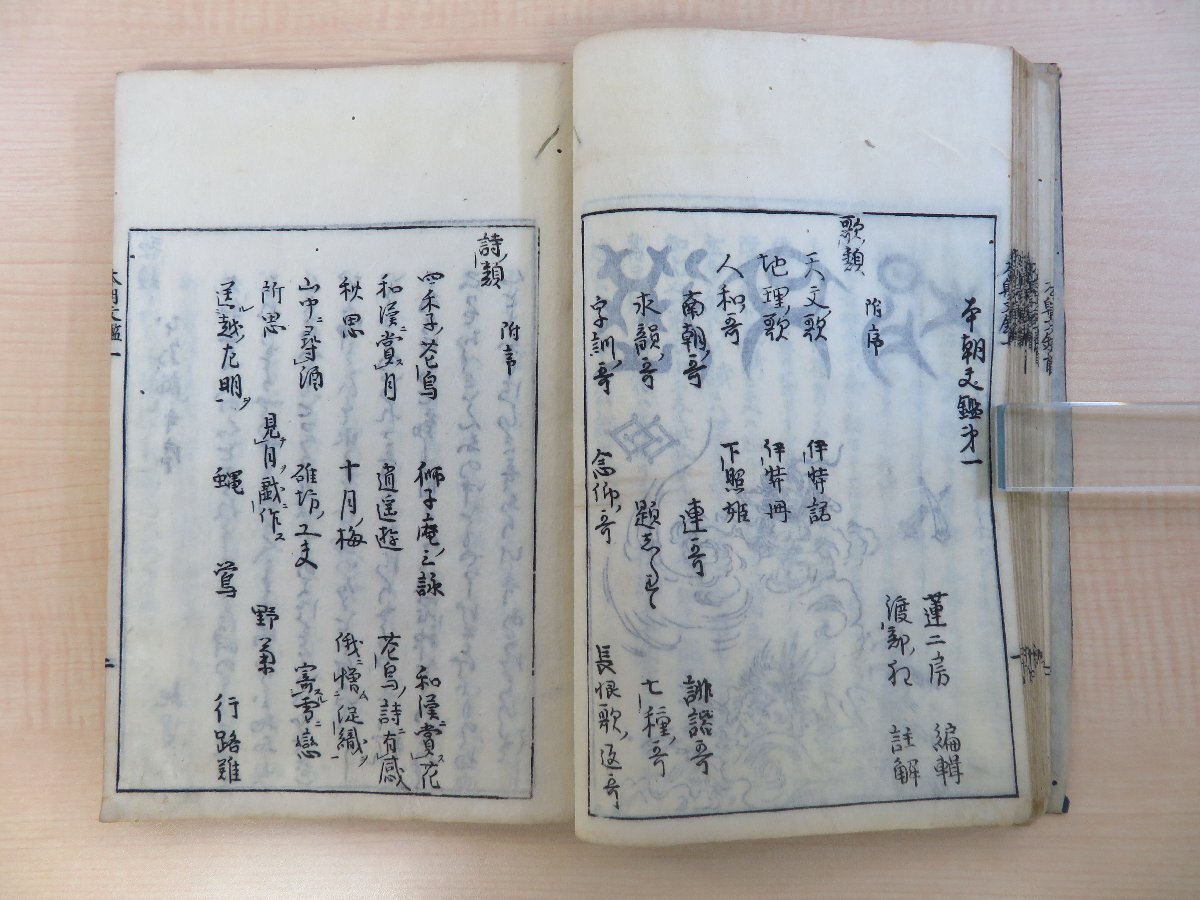 本朝文鑑第一
蓮二房 編輯
渡部ノ狂 註解
歌類 附序
天文ノ歌 伊弉諾
地理ノ歌 伊弉冊
人和ノ哥 下照姫
南朝ノ哥 連哥 誹諧哥
永韻ノ哥 七種ノ哥
字訓ノ哥 念仰ノ哥 長恨歌ノ返哥
詩類 附序
四季ノ花鳥 獅子庵ノ三詠 和漢賞花
和漢賞月 逍遥遊 花鳥ノ詩有感
秋思 十月ノ梅 俄憎促織
山中尋酒 碓坊ノ工夫 寄雪戀
所思 見月戯作 野菊
送越左明 蝿 鴬 行路難
本朝文鑑一